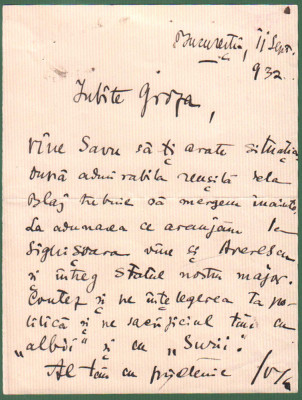 București, 11 Sept.
932
Iubite Groza,
Vine Savu să ți arate situația
După admirabila reușită dela
Blaj trebuie să mergem înainte
La adunarea ce aranjăm la
Sighișoara vine și Averescu
și întreg statul nostru major.
Contez și pe înțelegerea ta po-
litică și pe sacrificiul tău cu
„albii” și cu „Surii”.
Al tău cu prietenie